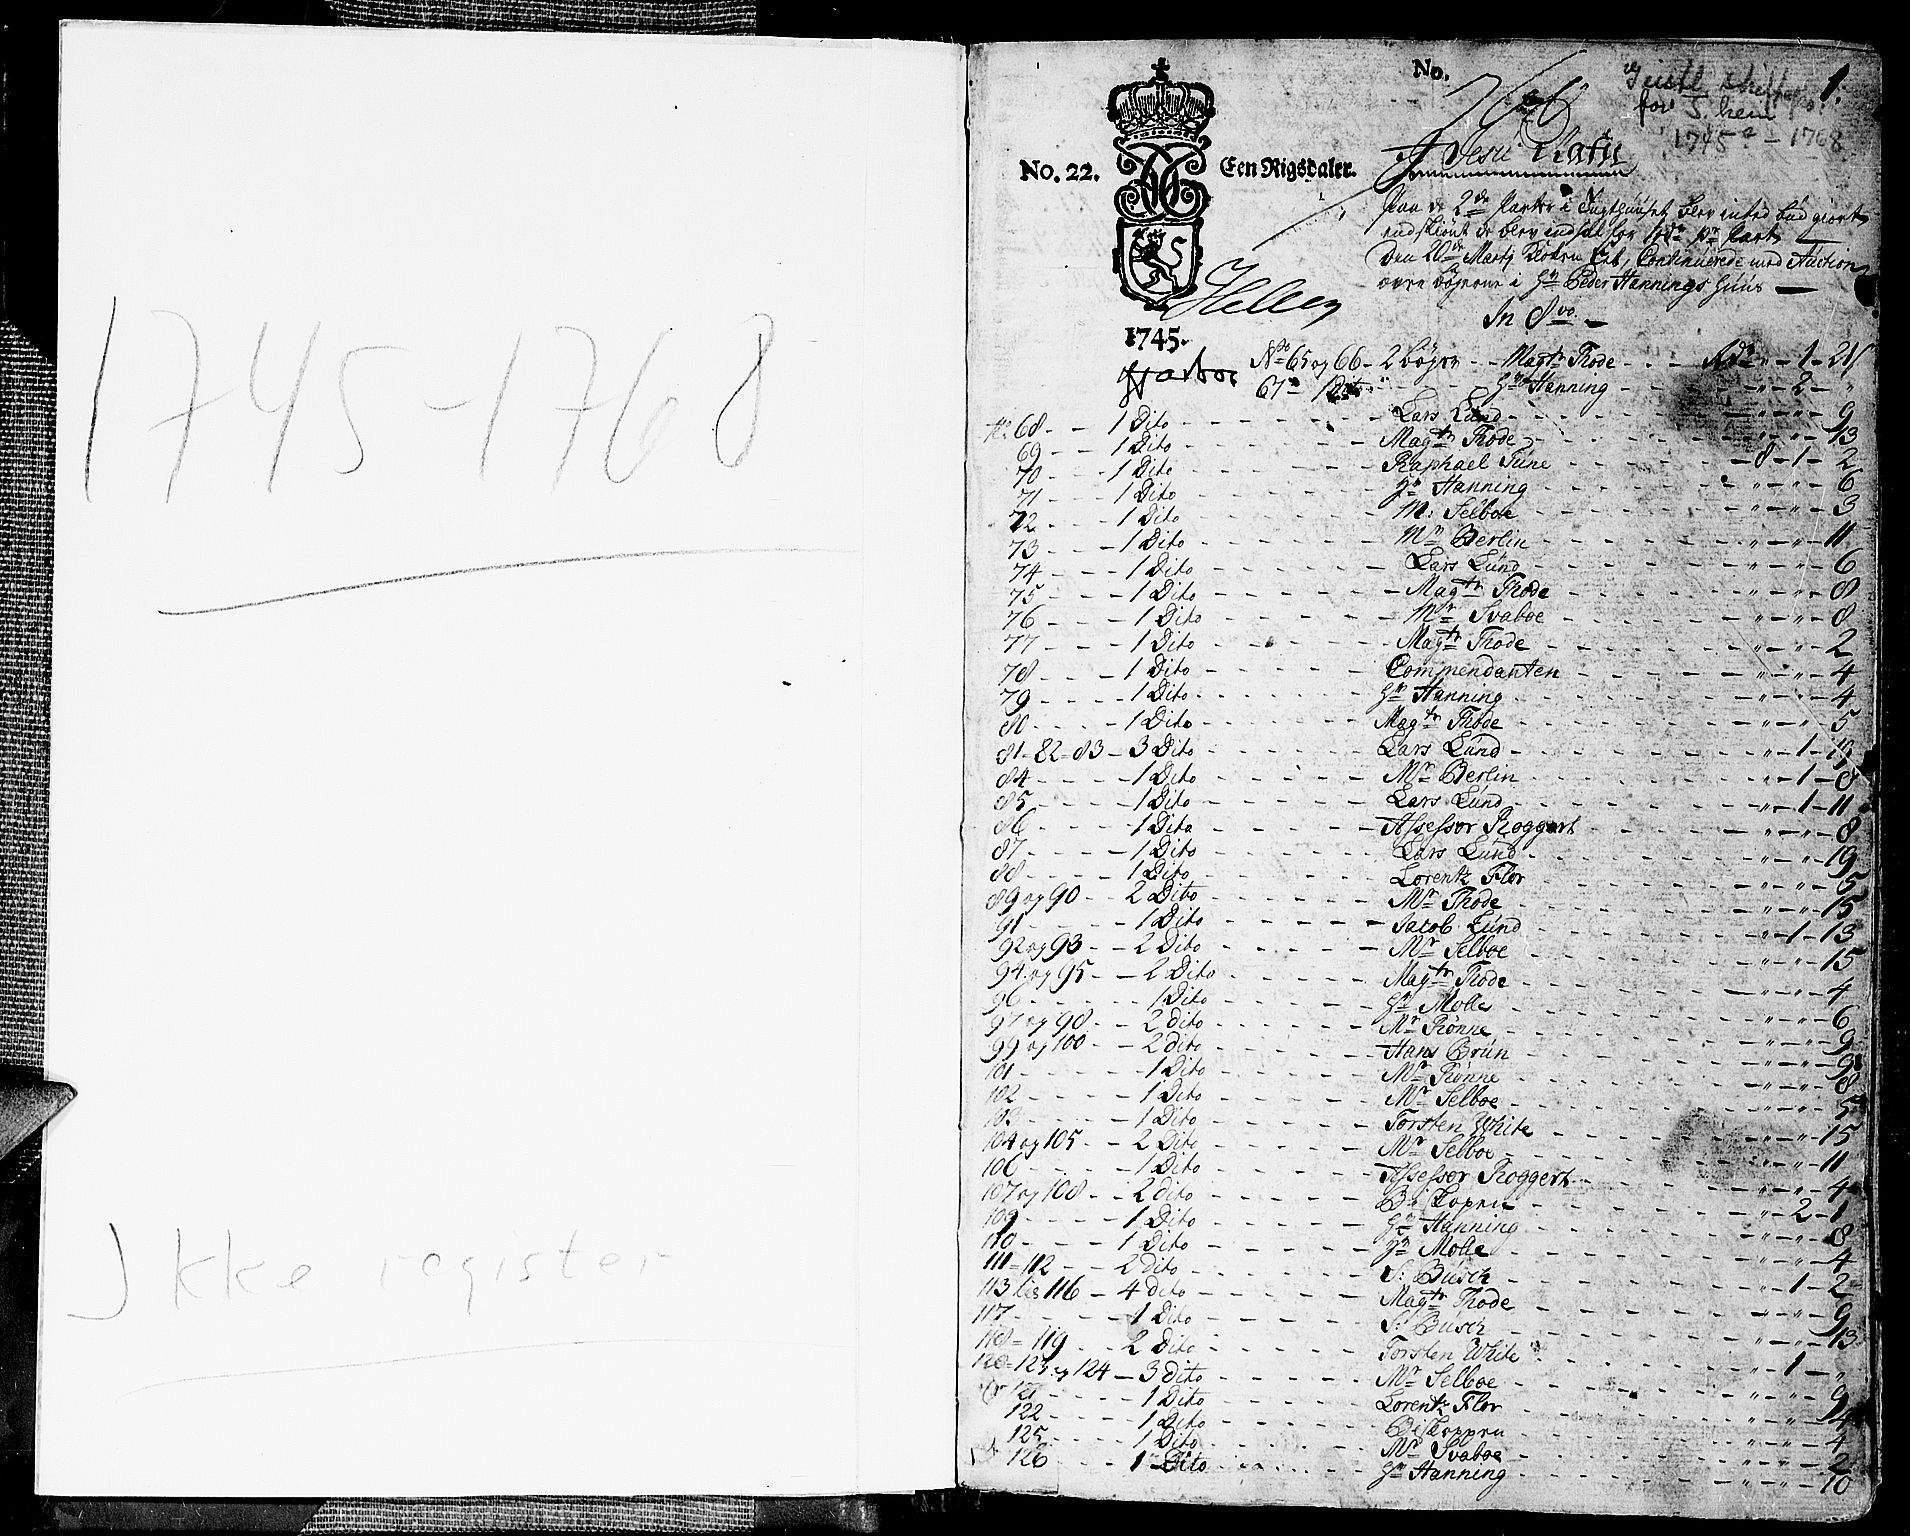 1745-1768
Ikke register
No.
1.
for
1745 - 1768
No. 22.
Een Rigsdaler.
Jesu
Paa de 2de Parter i blev inted bud giort
endskiønt de blev for Part
Den 20de Martij Continuerede med Auction
over bøgerne i Hr Peder Hannings Huus
In 8vo
1745.
No 65 og 66 - 2 bøger - Magtr Thode - 1 - 21
67 - 1 Dito - Hr Hanning - 2 - "
No 68 - 1 Dito - Lars Lund - 9
69 - 1 Dito - Magtr Thode - 13
70 - 1 Dito - Raphael Tüne - 1 - 2
71 - 1 Dito - Hr Hanning - 6
72 - 1 Dito - M: Selboe - 3
73 - 1 Dito - Mr Berlin - 11
74 - 1 Dito - Lars Lund - 6
75 - 1 Dito - Magtr Thode - 8
76 - 1 Dito - Mr Svaboe - 8
77 - 1 Dito - Magtr Thode - 2
78 - 1 Dito - Commendanten - 4
79 - 1 Dito - Hr Hanning - 4
80 - 1 Dito - Magtr Thode - 5
81 - 82 - 83 - 3 Dito - Lars Lund - 1 - 13
84 - 1 Dito - Mr Berlin - 1 - 8
85 - 1 Dito - Lars Lund - 1 - 11
86 - 1 Dito - Assessor Roggert - 8
87 - 1 Dito - Lars Lund - 19
88 - 1 Dito - Lorentz Flor - 5
89 og 90 - 2 Dito - Mr Thode - 15
91 - 1 Dito - Jacob Lund - 1 - 13
92 og 93 - 2 Dito - Mr Selboe - 15
94 og 95 - 2 Dito - Magtr Thode - 4
96 - 1 Dito - Hr Molle - 6
97 og 98 - 2 dito - Mr Rönne - 9
99 og 100 - 2 dito - Hans Brün - 9
101 - 1 Dito - Mr Rönne - 8
102 - 1 Dito - Mr Selboe - 5
103 - 1 Dito - Torsten White - 15
104 og 105 - 2 Dito - Mr Selboe - 11
106 - 1 Dito - Assessor Roggert - 4
107 og 108 - 2 dito - Biskoppen - 2 - 1
109 - 1 Dito - Hr Hanning - 8
110 - 1 Dito - Hr Molle - 4
111 - 112 - 2 dito - S: Busch - 1 - 2
113 til 116 - 4 dito - Magtr Thode - 9
117 - 1 Dito - S: Busch - 13
118 - 119 - 2 Dito - Torsten White - 1 - "
120 - 123 og 124 - 3 dito - Mr Selboe - 9
121 - 1 Dito - Lorentz Flor - 4
122 - 1 Dito - Biskoppen - 4
125 - 1 Dito - Mr Svaboe - 2
126 - 1 Dito - Hr Hanning - 10